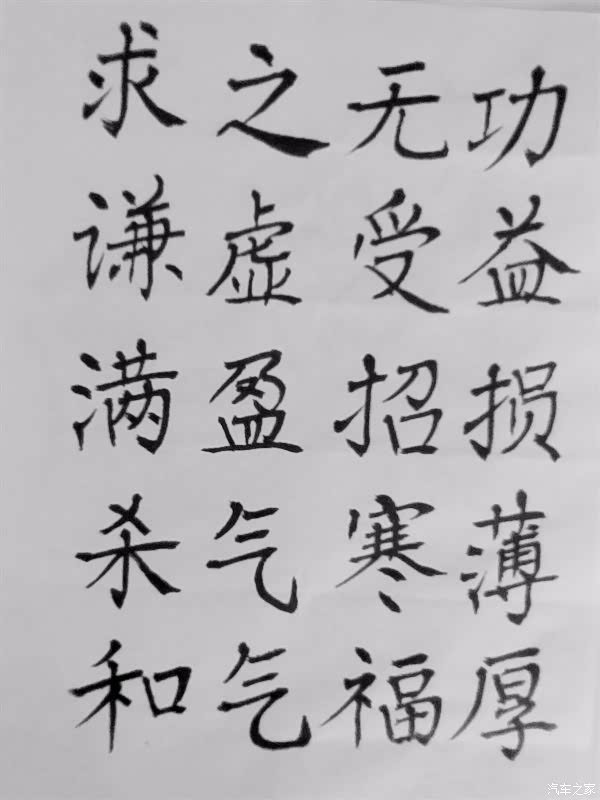 求之无功
谦虚受益
满盈招损
杀气寒薄
和气福厚
汽车之家